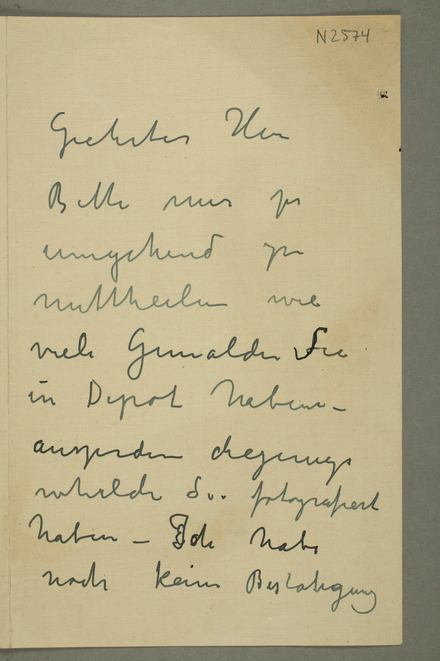 N2574
Geehrter Herr
Bitte mir
umgehend zu
mittheilen wie
viele Gemälde Sie
in Depot haben –
ausserdem diejenige
welche Sie fotografiert
haben – Ich habe
noch keine Bestätigung